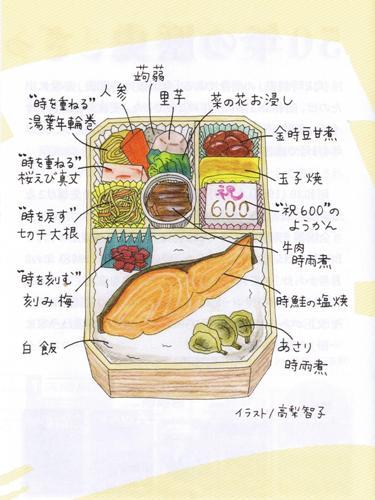 蒟蒻
人参
里芋
菜の花お浸し
"時を重ねる"
湯葉年輪巻
金時豆甘煮
"時を重ねる"
桜えび真丈
玉子焼
祝
600
"時を戻す"
切干大根
"祝600"の
ようかん
牛肉
時雨煮
"時を刻む"
刻み梅
時鮭の塩焼
白飯
あさり
時雨煮
イラスト/高梨智子